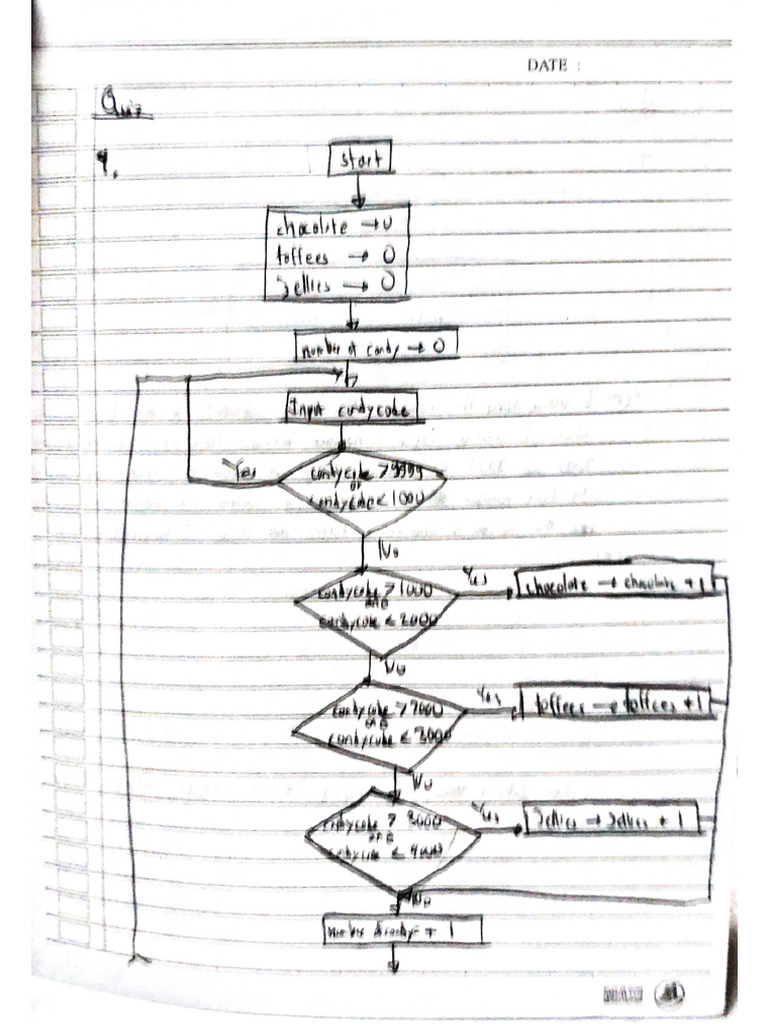 DATE :
Quiz
9.
start
chocolate → 0
toffees → 0
Jellies → 0
number of candy → 0
Input candycode
Yes
candycode > 9999
or
candycode < 1000
No
candycode > 1000
and
candycode < 2000
Yes
chocolate → chocolate + 1
No
candycode > 2000
and
candycode < 3000
Yes
toffees → toffees + 1
No
candycode > 3000
and
candycode < 4000
Yes
Jellies → Jellies + 1
No
number of candy + 1